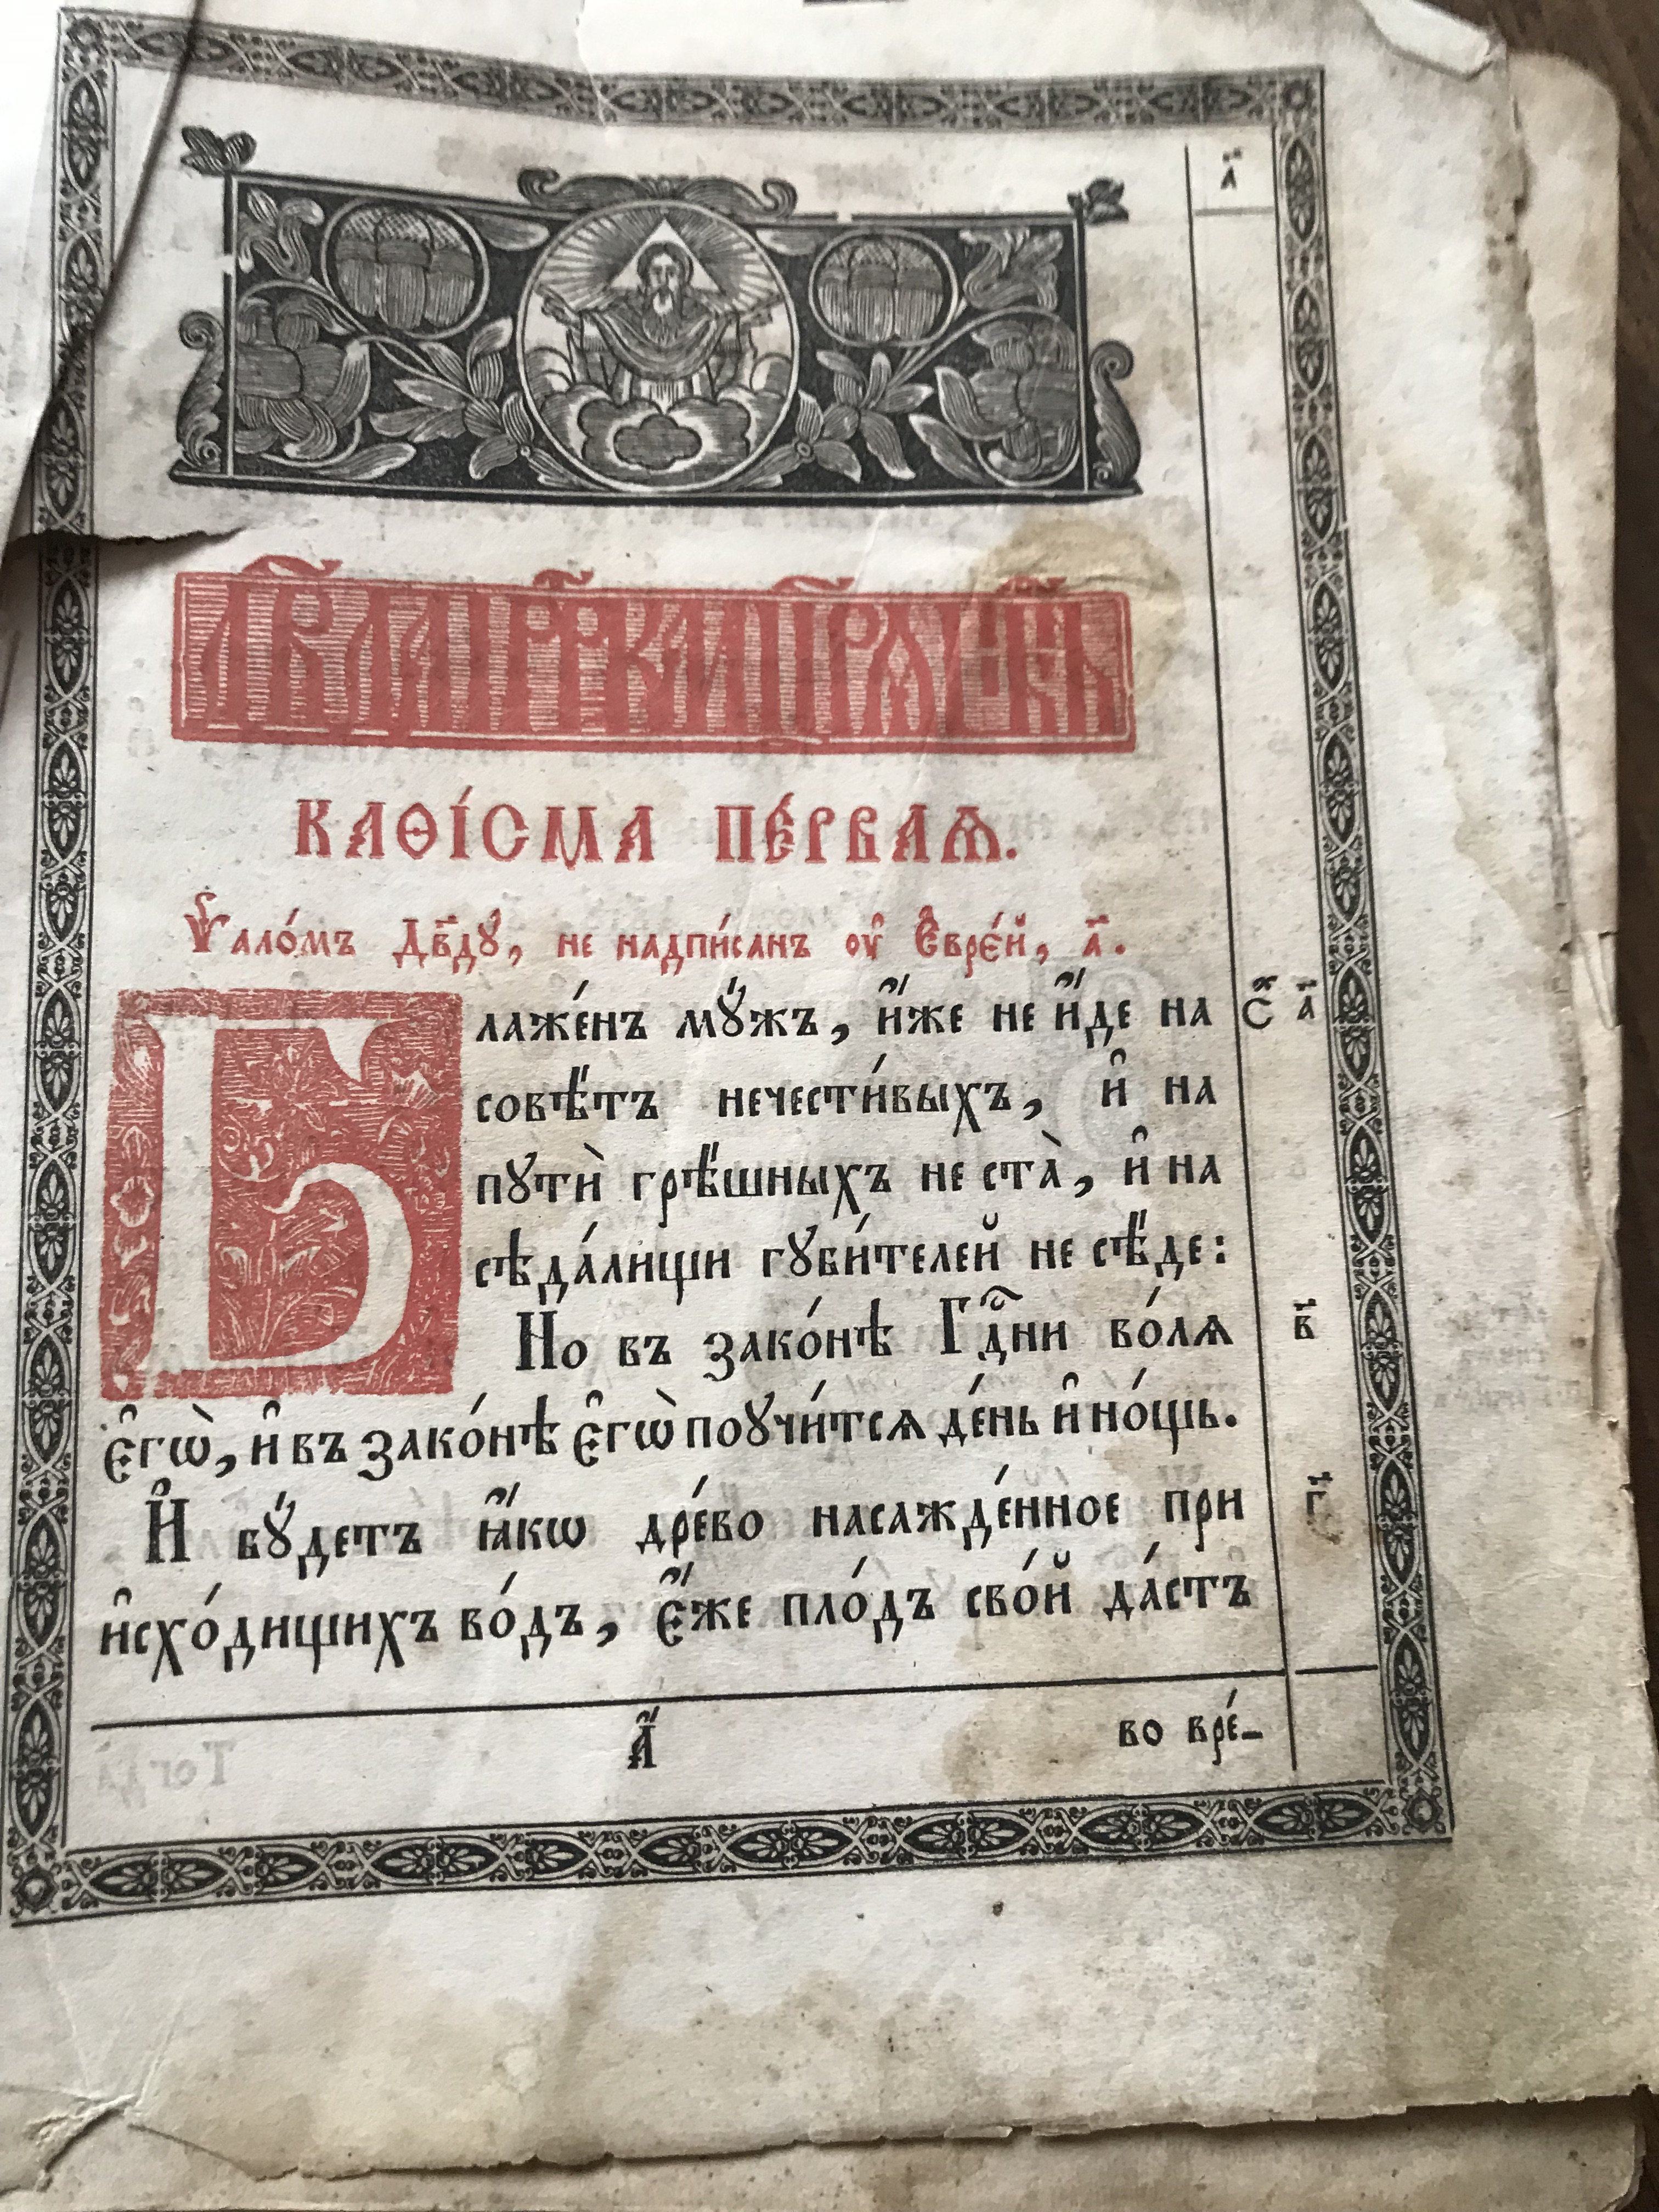 а҃
КАѲІ́СМА ПЕ́РВАѦ.
Ѱало́мъ Дв҃дꙋ, не надпи́санъ ᲂу҆ Є҆вре́й, а҃.
Блаже́нъ мꙋ́жъ, и҆́же не и҆́де на с҃ а҃
совѣ́тъ нечести́выхъ, и҆ на
пꙋтѝ грѣ́шныхъ не ста̀, и҆ на
сѣда́лищи гꙋби́телей не сѣ́де:
Но въ зако́нѣ Гдⷭ҇ни во́лѧ в҃
є҆гѡ̀, и҆ въ зако́нѣ є҆гѡ̀ поꙋчи́тсѧ де́нь и҆ но́щь.
И҆ бꙋ́детъ ꙗ҆́кѡ дре́во насажде́нное при г҃
и҆схо́дищихъ во́дъ, є҆́же пло́дъ сво́й да́стъ
а҃ во вре́-